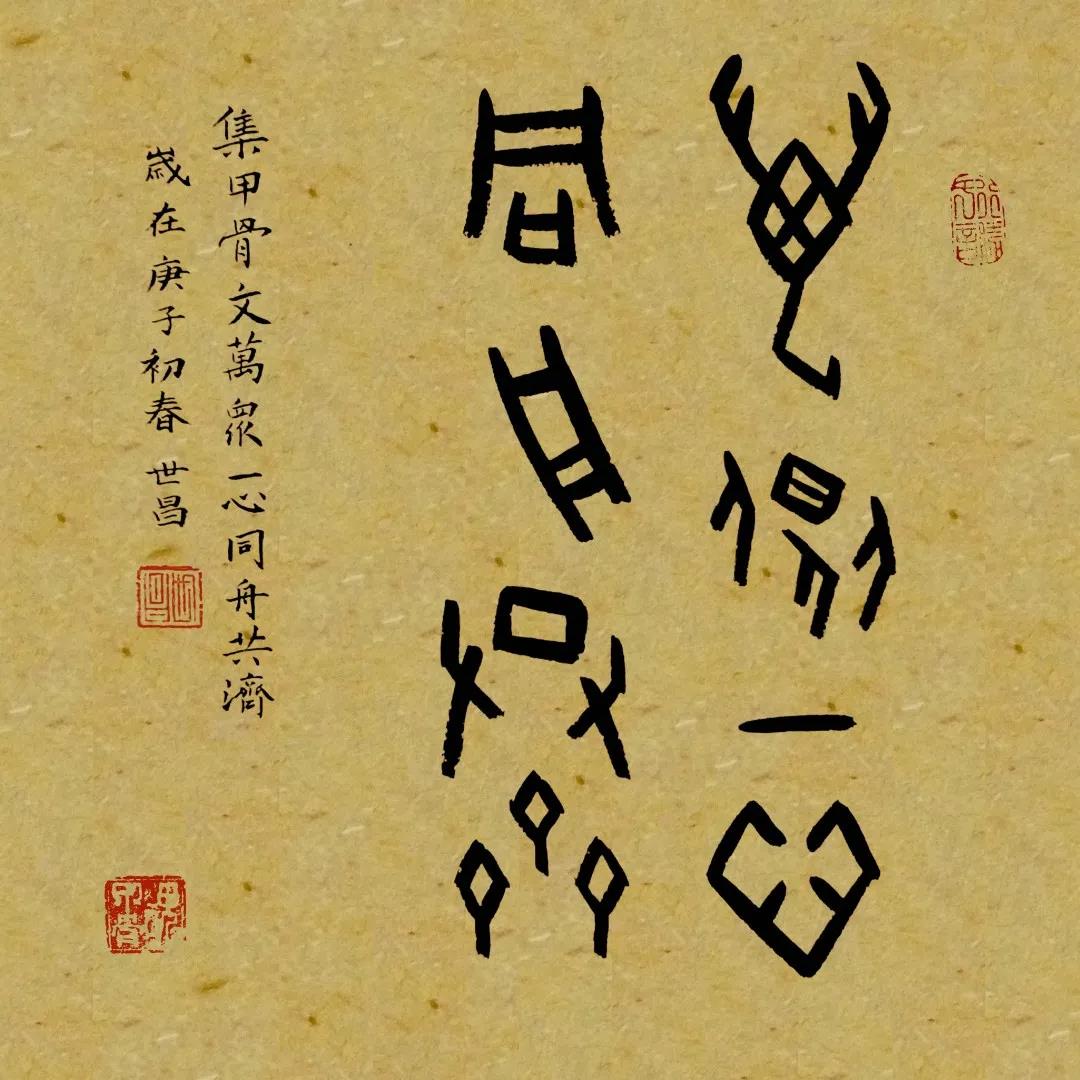 萬眾一心
同舟共濟
集甲骨文萬眾一心同舟共濟
歲在庚子初春 世昌